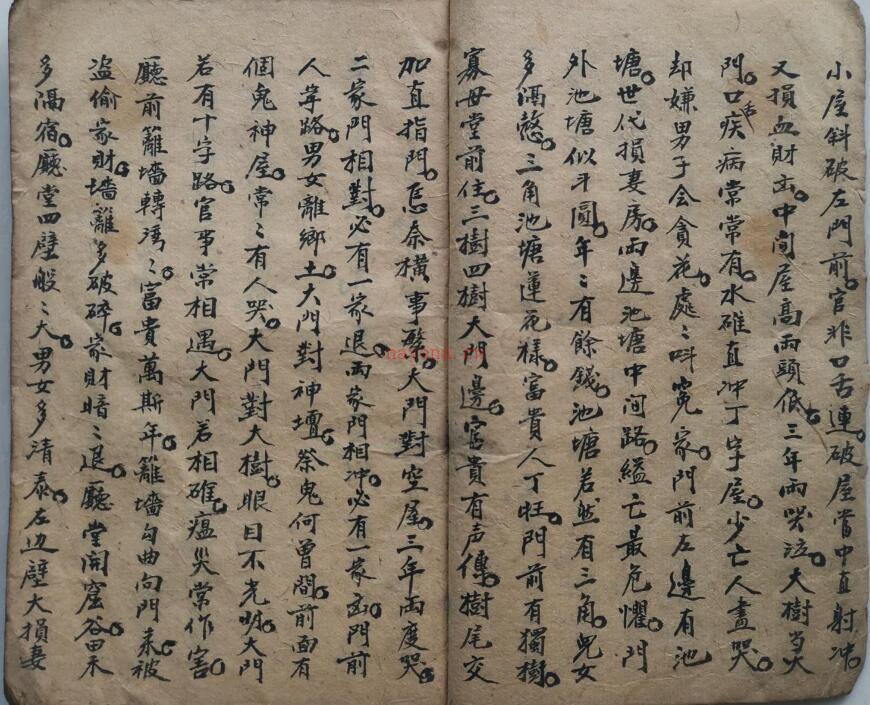 小屋斜破左門前。官非口舌連。破屋當中直射冲。
又損血財出。中间屋高兩頭低。三年兩哭泣。大樹当大
門。口舌疾病常常有。水碓直冲丁字屋。少亡人盡哭。
却嫌男子会貪花。處〻呌寃家。門前左邊有池
塘。世代損妻房。兩邊池塘中间路。縊亡最危懼。門
外池塘似斗圓。年〻有餘錢。池塘若然有三角。兒女
多隔愁。三角池塘蓮花樣。富貴人丁旺。門前有獨樹。
寡母堂前住。三樹四樹大門邊。官貴有声傳。樹尾交
加直指門。忌奈橫事發。大門對空屋。三年兩度哭。
二家門相對。必有一家退。兩家門相冲。必有一家凶。門前
人字路。男女離鄉土。大門對神壇。祭鬼何曾間。前面有
個鬼神屋。常〻有人哭。大門對大樹。眼目不光明。大門
若有十字路。官爭常相遇。大門若相碓。瘟災常作害。
廳前籬墻轉湾〻。富貴萬斯年。籬墻勾曲向門来。被
盗偷家財。墻籬多破碎。家財暗〻退。廳堂開窟谷。田禾
多隔宿。廳堂四壁般〻大。男女多清泰。左边壁大損妻